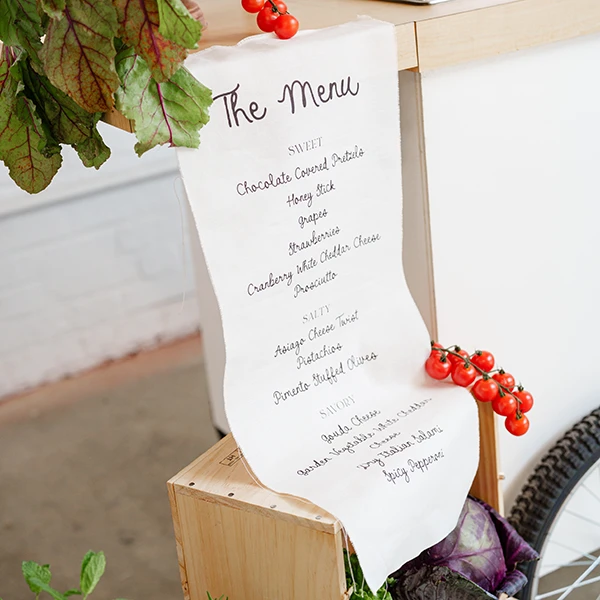 The Menu
SWEET
Chocolate Covered Pretzels
Honey Stick
Grapes
Strawberries
Cranberry White Cheddar Cheese
Prosciutto
SALTY
Asiago Cheese Twist
Pistachios
Pimento Stuffed Olives
SAVORY
Gouda Cheese
Garden Vegetable White Cheddar
Cheese
Dry Italian Salami
Spicy Pepperoni